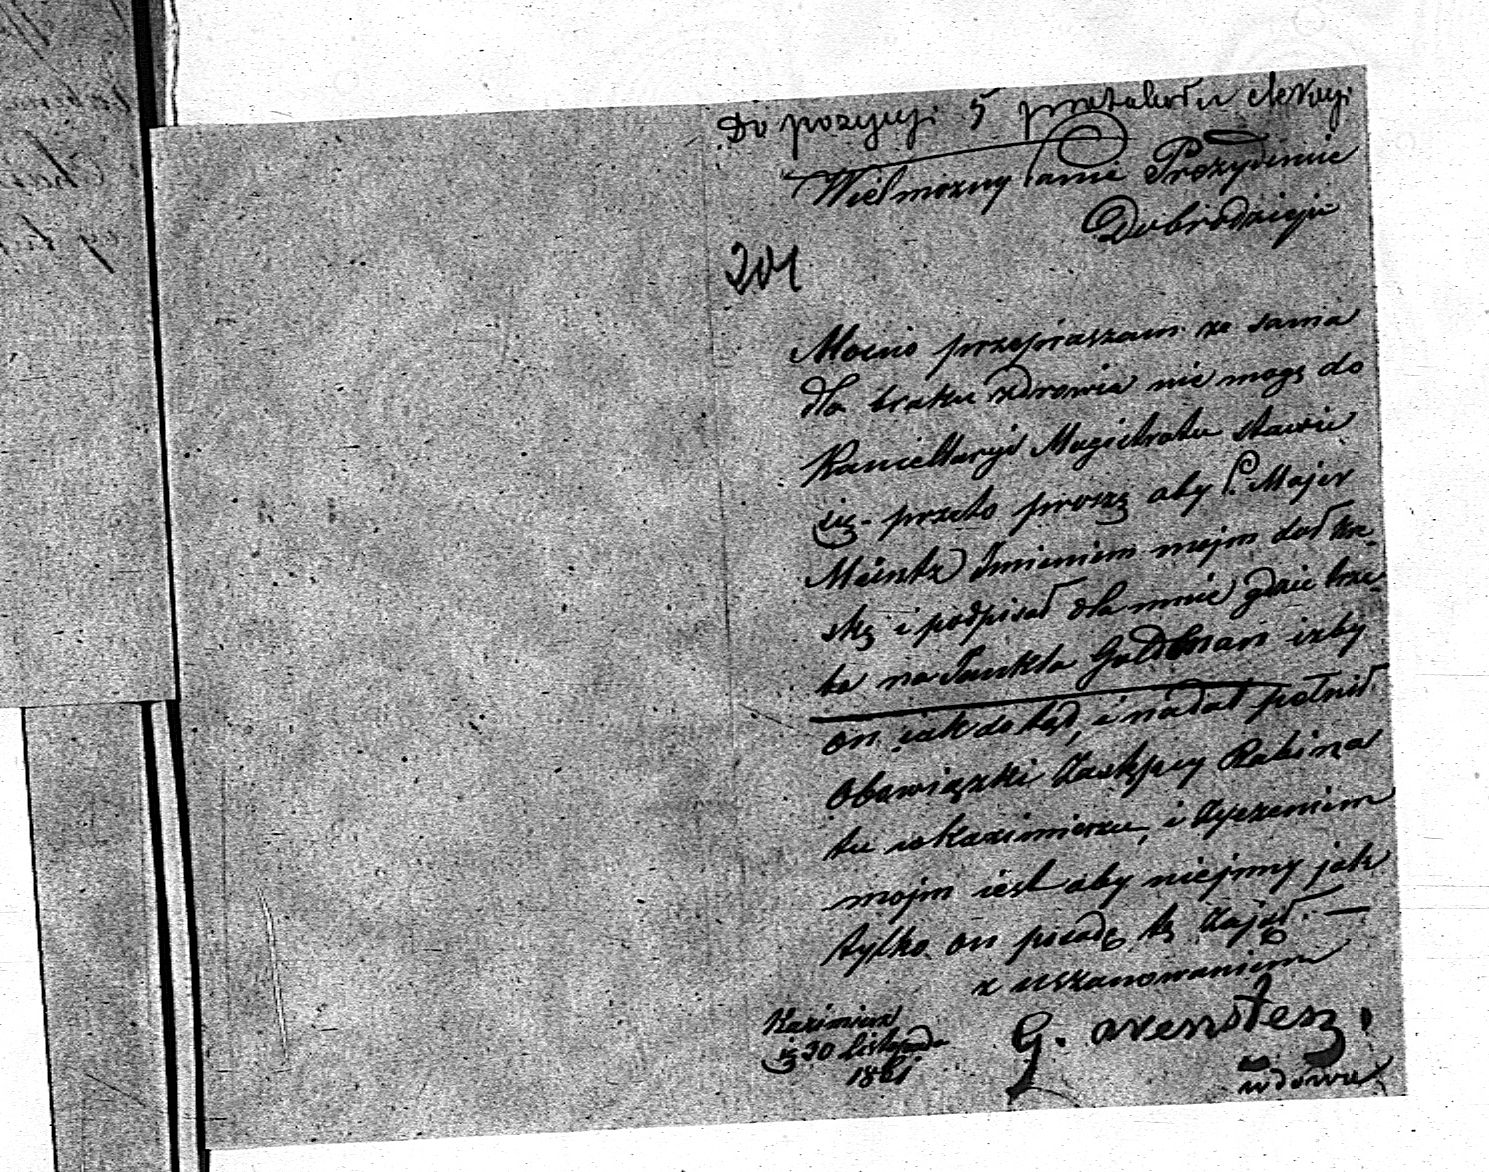 Do pozycyi 5 protokołu
Wielmożny Panie Prezydencie
Dobrodzieju
201
Mocno przepraszam że sama
dla braku zdrowia nie mogę do
Kancellaryi Magistratu stawić
się - przeto proszę aby P. Majer
Meintz Imieniem mojm dał kre-
skę i podpisał dla mnie gdzie trze-
ba na Jankla Goldman izby
on jak dotąd, i nadal pełnił
obowiązki Zastępcy Rabina
tu w Kazimierzu, i życzeniem
mojm iest aby niejnny jak
tylko on posadę tę zajął. —
z uszanowaniem
Kazimierz
30 listopada
1861
G.
wdowa